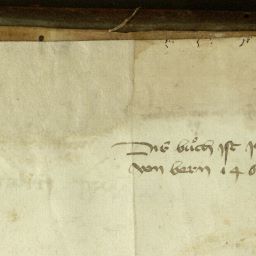 Dis bůch ist
von bern 14